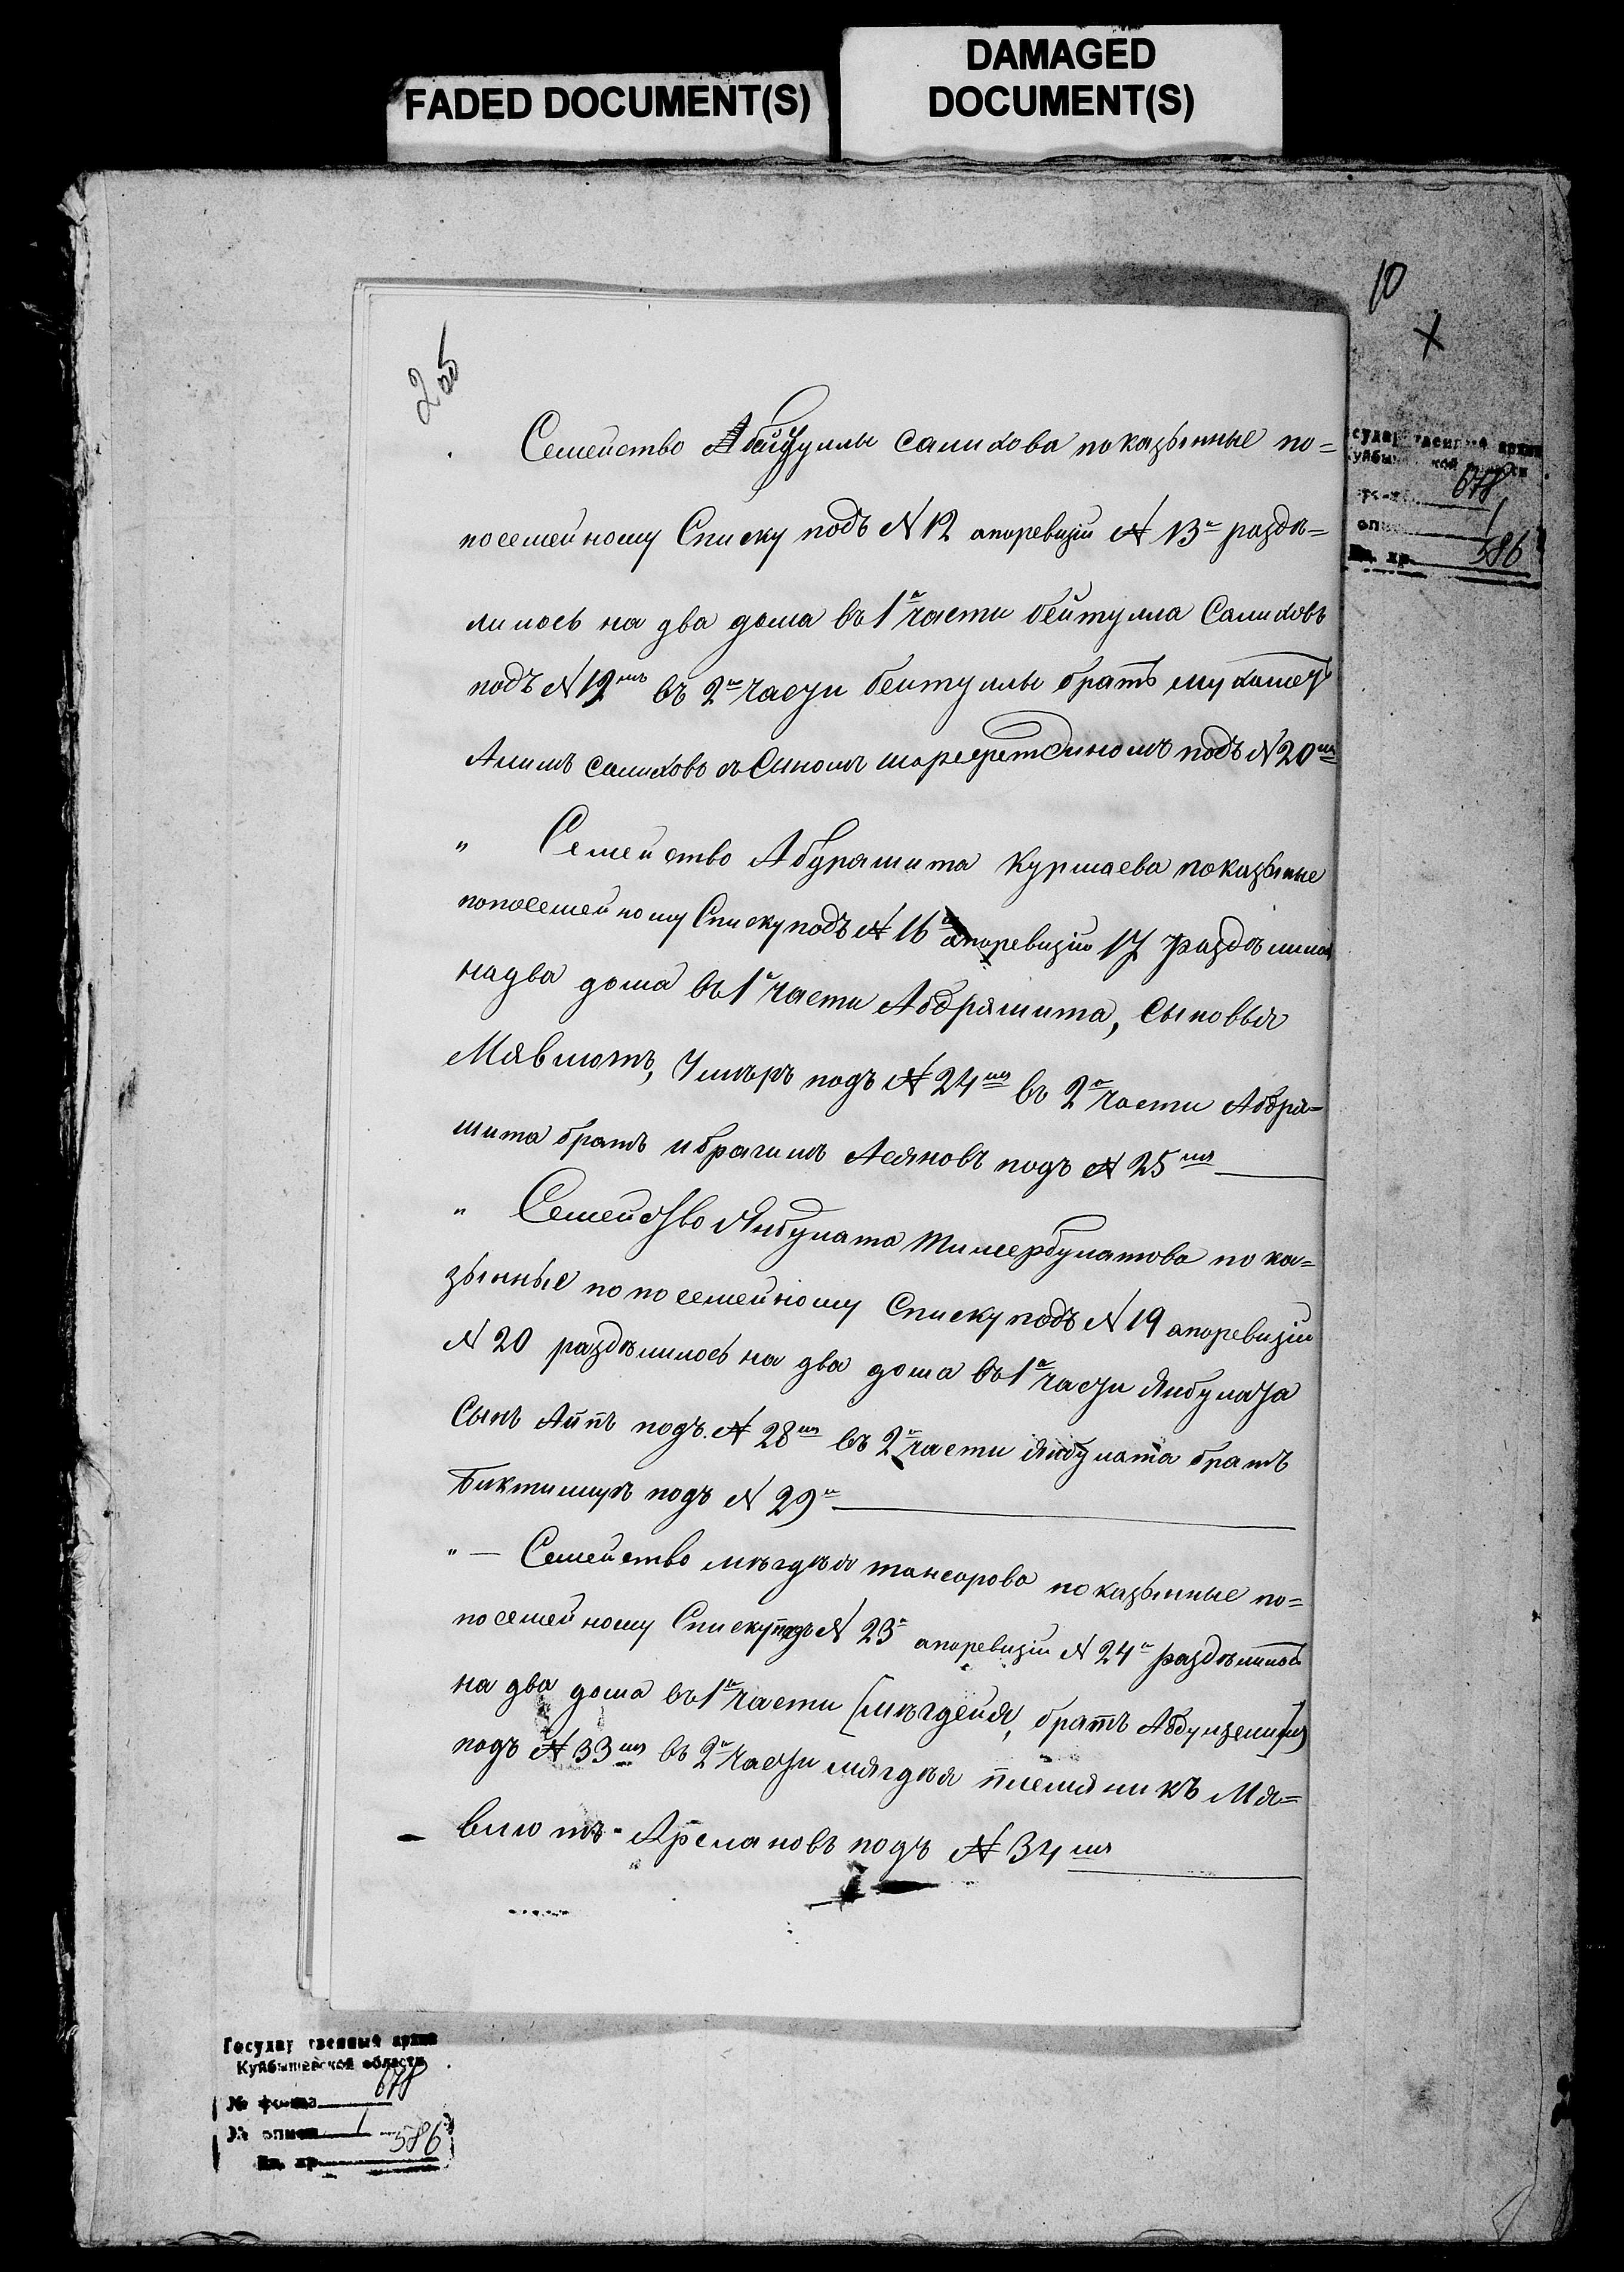 FADED DOCUMENT(S)
DAMAGED
DOCUMENT(S)
10
Х
205
Семейство бейтуллы Салихова показынные по=
посемейному Списку подъ № 12 апоревизiи № 13й раздѣ=
лилось на два дома въ 1й части бейтулла Салиховъ
подъ № 12мъ въ 2й части бейтуллы братъ мухамет
Алимъ Салиховъ съ Сыномъ шарефетдиномъ подъ № 20мъ
" Семейство Абдряшита Курмаева показынные
попосемейному Списку подъ № 16й апоревизiи 17 раздѣлилось
на два дома въ 1й части Абдряшита, Сыновья
Мявлютъ, Умѣръ подъ № 24мъ въ 2й части Абдря=
шита братъ ибрагимъ Асяновъ подъ № 25мъ
" Семейство Янбулата Тимербулатова пока=
зынные попосемейному Списку подъ № 19 апоревизiи
№ 20 раздѣлилось на два дома въ 1й части Янбулата
Сынъ Аипъ подъ № 28мъ въ 2й части Янбулата братъ
Биктимиръ подъ № 29й
"— Семейство мѣгдѣя тансарова показынные по=
посемейному Списку подъ № 23й апоревизiи № 24й раздѣлилось
на два дома въ 1й части [мѣгдейя, братъ
подъ № 33мъ въ 2й части мягдѣя племяникъ Мя=
влютъ Арслановъ подъ № 34мъ
678
1
586
Государственный архив
Куйбышевской области
№ фонда 678
№ описи 1
Ед. хр. 586